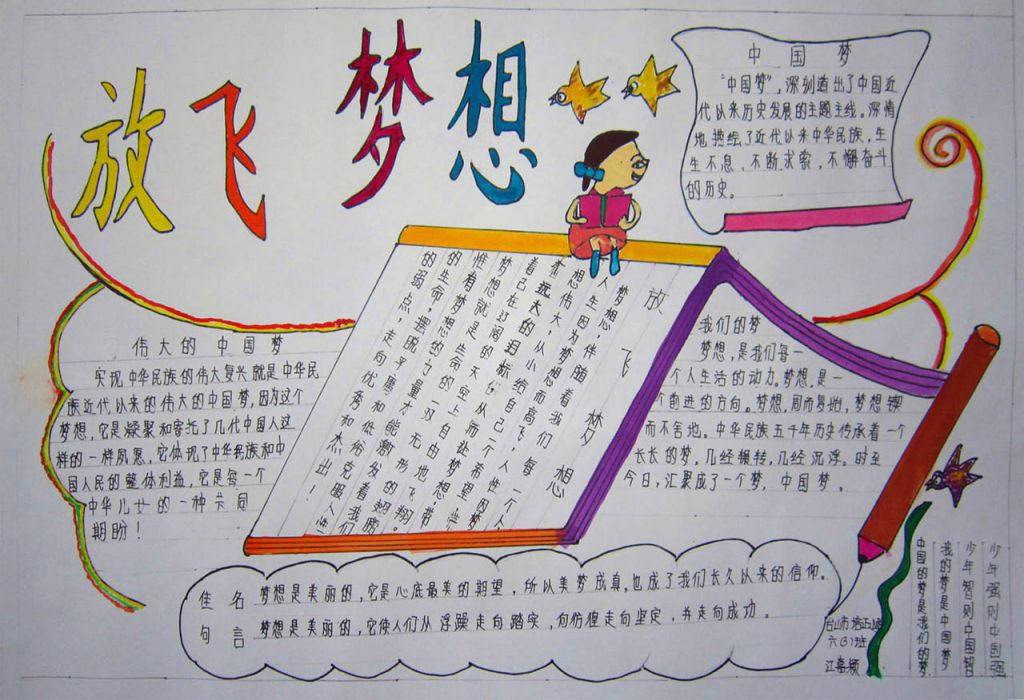 放飞梦想
中国梦
“中国梦”，深刻道出了中国近
代以来历史发展的主题主线。深情
地描绘了近代以来中华民族，生
生不息，不断求索，不懈奋斗
的历史。
伟大的中国梦
实现中华民族的伟大复兴就是中华民
族近代以来的伟大的中国梦，因为这个
梦想，它是凝聚和寄托了几代中国人这
样的一样夙愿，它体现了中华民族和中
国人民的整体利益，它是每一个
中华儿女的一种共同
期盼！
放飞梦想
梦想，伴随着我们每一个人
人生因为梦想而高飞，人性因梦
想伟大，从小给自己一个希望，让
着己在过阔的天
梦想就是生命的一双自由地飞翔。
惟有梦想的力量才能激发着我们
的生命，摆脱平庸和低俗克服人性
的弱点，走向优秀和杰出！
我们的梦
梦想，是我们每一
个人生活的动力。梦想，是一
个前进的方向。梦想，周而复始，梦想锲
而不舍地。中华民族五千年历史传承着一个
长长的梦，几经辗转，几经沉浮。时至
今日，汇聚成了一个梦，中国梦。
佳名
句言
梦想是美丽的，它是心底最美的期望，所以美梦成真，也成了我们长久以来的信仰。
梦想是美丽的，它使人们从浮躁走向踏实，向彷徨走向坚定，并走向成功。
少年强则中国强
少年智则中国智
我的梦是中国梦
中国的梦是我们的梦
六(3)班